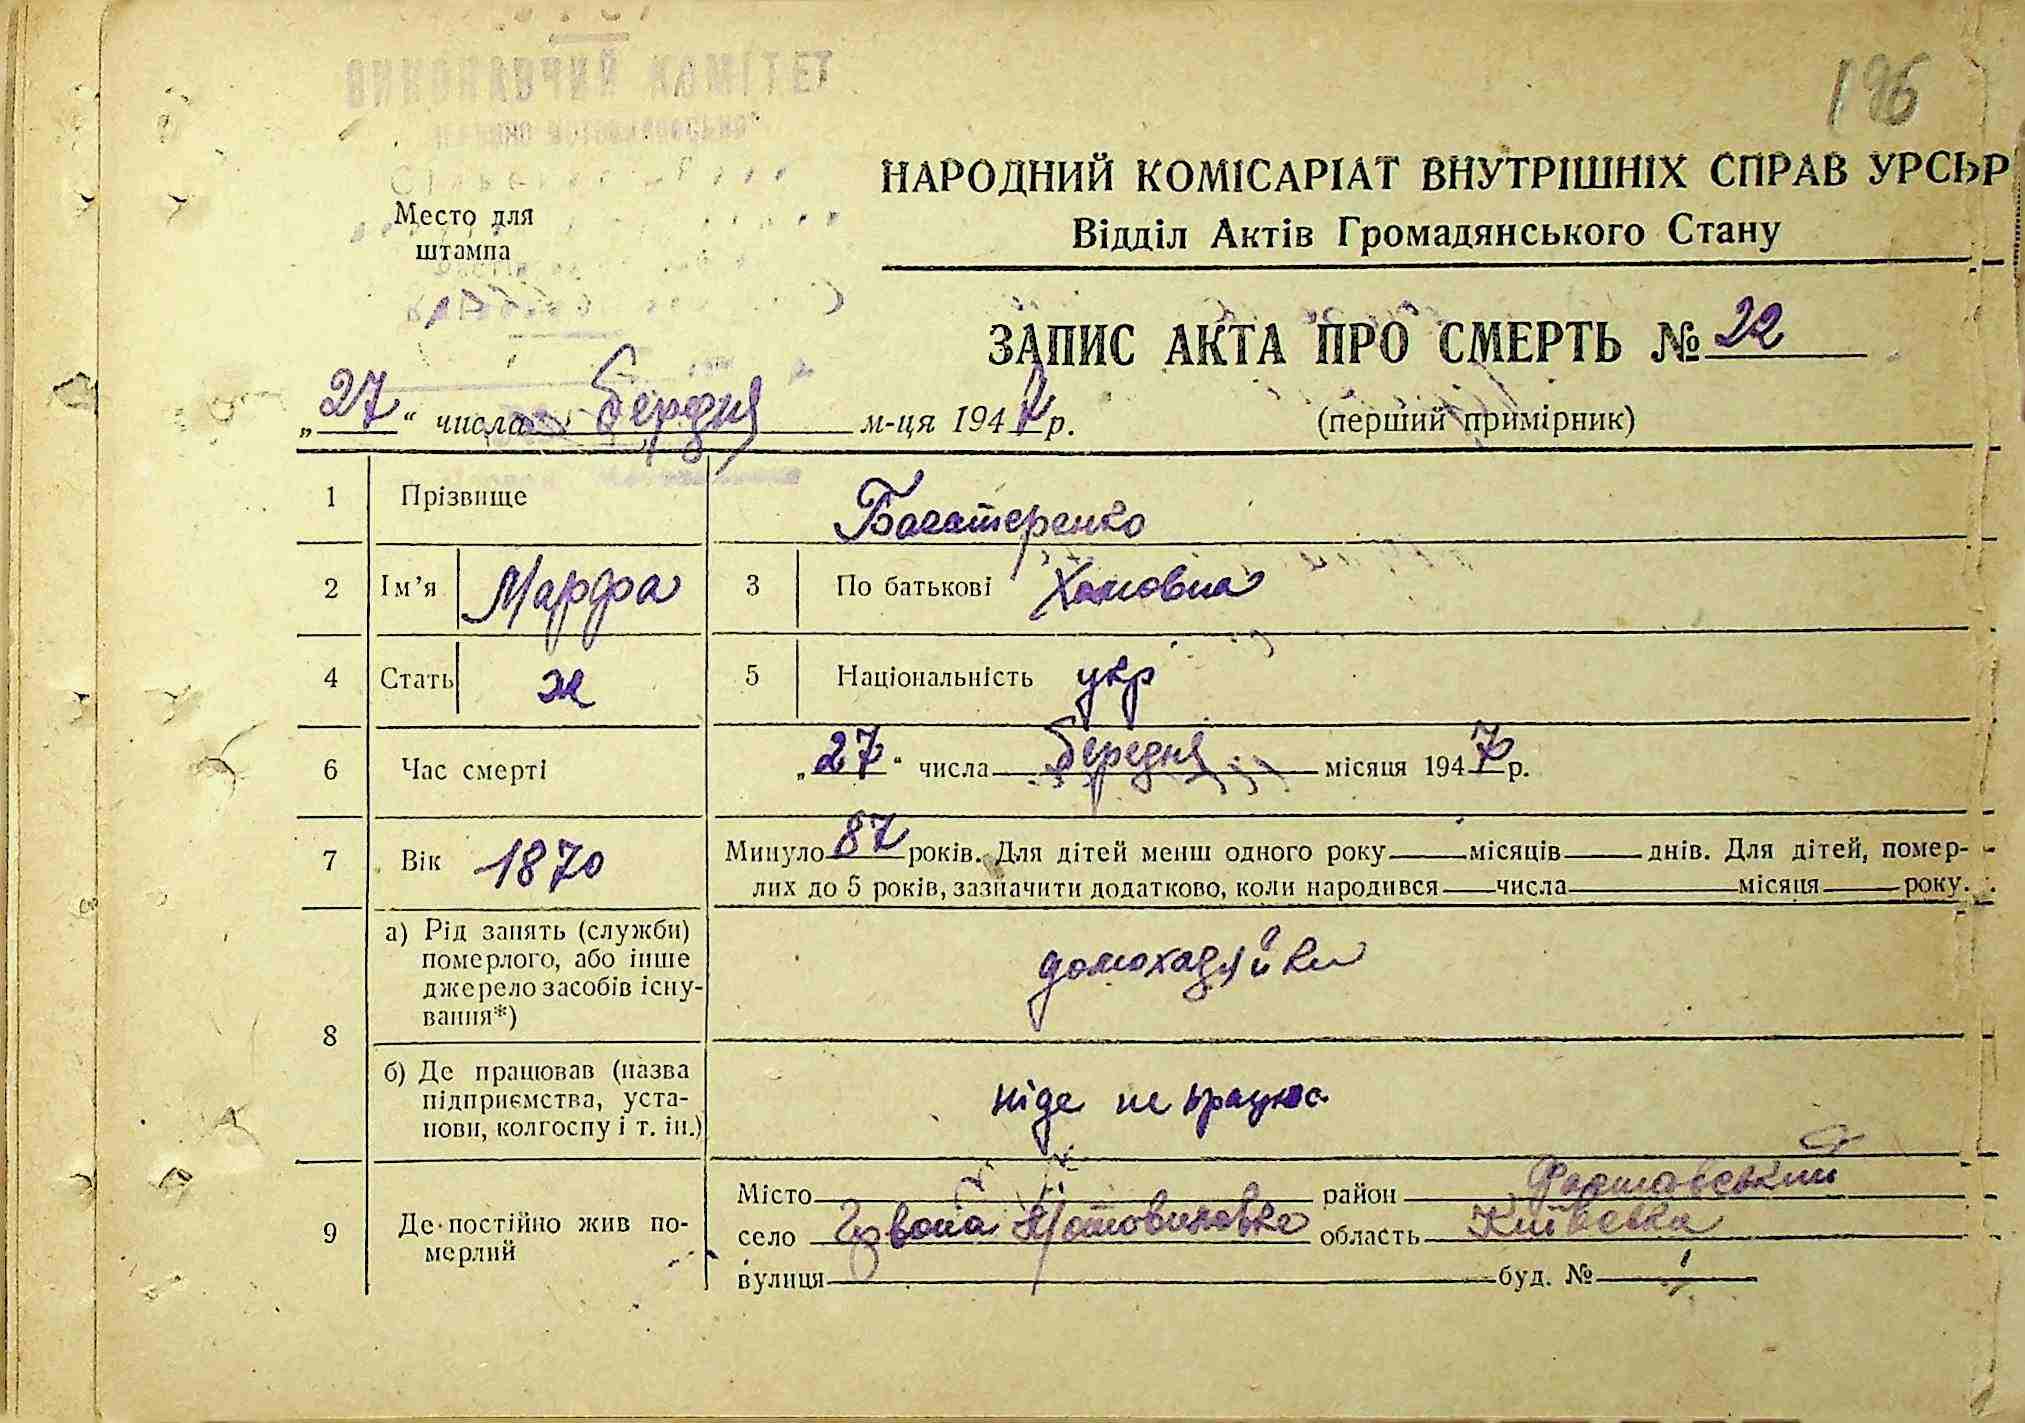 196
ВИКОНАВЧИЙ КОМІТЕТ
Место для
штампа
НАРОДНИЙ КОМІСАРІАТ ВНУТРІШНІХ СПРАВ УРСЬР
Відділ Актів Громадянського Стану
ЗАПИС АКТА ПРО СМЕРТЬ № 22
„27“ числа бередня м-ця 1947 р. (перший примірник)
1 Прізвище Багатеренко
2 Ім’я Марфа 3 По батькові Хомовна
4 Стать ж 5 Національність укр
6 Час смерті „27“ числа бередня місяця 1947 р.
7 Вік 1870 Минуло 87 років. Для дітей менш одного року місяців днів. Для дітей, помер-
лих до 5 років, зазначити додатково, коли народився числа місяця року.
8 а) Рід занять (служби)
померлого, або інше
джерело засобів існу-
вання*)
домохадяйки
б) Де працював (назва
підприємства, уста-
нови, колгоспу і т. ін.)
ніде не працює
9 Де постійно жив по-
мерлий
Місто район Фастовський
село Червона Мотовиловка область Київська
вулиця буд. №